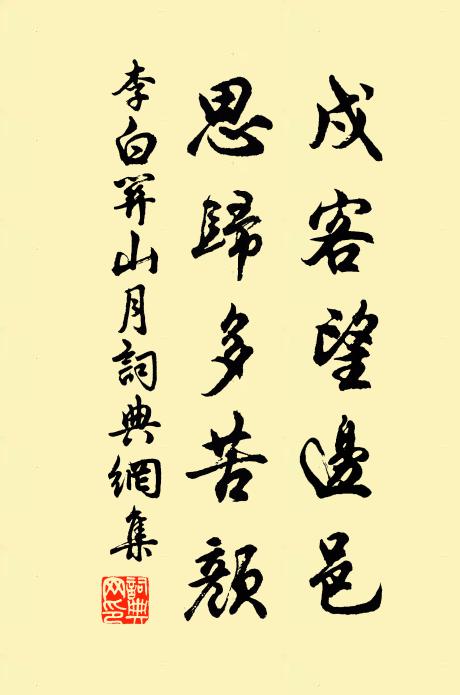 戍客望邊邑
思歸多苦顏
李白關山月詞典網集
詞典
网印